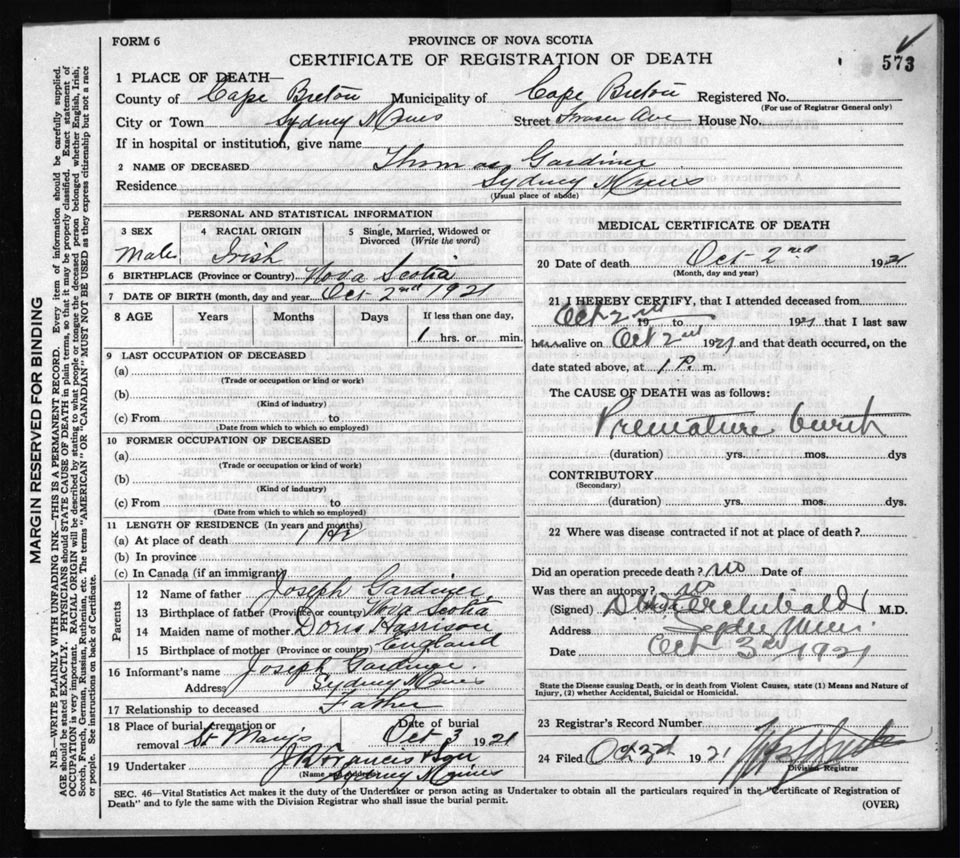 FORM 6
PROVINCE OF NOVA SCOTIA
CERTIFICATE OF REGISTRATION OF DEATH
573
1 PLACE OF DEATH—
County of Cape Breton Municipality of Cape Breton Registered No.
(For use of Registrar General only)
City or Town Sydney Mines Street Fraser Ave House No.
If in hospital or institution, give name
2 NAME OF DECEASED Thomas Gardiner
Residence Sydney Mines
(Usual place of abode)
PERSONAL AND STATISTICAL INFORMATION
3 SEX 4 RACIAL ORIGIN 5 Single, Married, Widowed or
Divorced (Write the word)
Male Irish
6 BIRTHPLACE (Province or Country) Nova Scotia
7 DATE OF BIRTH (month, day and year Oct 2nd 1921
8 AGE Years Months Days If less than one day,
1 hrs. or min.
9 LAST OCCUPATION OF DECEASED
(a)
(Trade or occupation or kind or work)
(b)
(Kind of industry)
(c) From to
(Date from which to which so employed)
10 FORMER OCCUPATION OF DECEASED
(a)
(Trade or occupation or kind or work)
(b)
(Kind of industry)
(c) From to
(Date from which to which so employed)
11 LENGTH OF RESIDENCE (In years and months)
(a) At place of death 1 Hr
(b) In province
(c) In Canada (if an immigrant)
Parents
12 Name of father Joseph Gardiner
13 Birthplace of father (Province or country) Nova Scotia
14 Maiden name of mother Doris Harrison
15 Birthplace of mother (Province or country) England
16 Informant's name Joseph Gardiner
Address Sydney Mines
17 Relationship to deceased Father
18 Place of burial, cremation or Date of burial
removal St Mary's Oct 3 1921
19 Undertaker J R Francis
(Name and address) Sydney Mines
MEDICAL CERTIFICATE OF DEATH
20 Date of death Oct 2nd 1921
(Month, day and year)
21 I HEREBY CERTIFY, that I attended deceased from
Oct 2nd 19 to 1921 that I last saw
him alive on Oct 2nd 1921 and that death occurred, on the
date stated above, at 1 P. m.
The CAUSE OF DEATH was as follows:
Premature birth
(duration) yrs. mos. dys
CONTRIBUTORY
(Secondary)
(duration) yrs. mos. dys.
22 Where was disease contracted if not at place of death?
Did an operation precede death? no Date of
Was there an autopsy? no
(Signed) Archibald M.D.
Address Sydney Mines.
Date Oct 3rd 1921
State the Disease causing Death, or in death from Violent Causes, state (1) Means and Nature of
Injury, (2) whether Accidental, Suicidal or Homicidal.
23 Registrar's Record Number
24 Filed Oct 1921
Division Registrar
SEC. 46—Vital Statistics Act makes it the duty of the Undertaker or person acting as Undertaker to obtain all the particulars required in the "Certificate of Registration of
Death" and to fyle the same with the Division Registrar who shall issue the burial permit.
(OVER)
MARGIN RESERVED FOR BINDING
N.B.—WRITE PLAINLY WITH UNFADING INK—THIS IS A PERMANENT RECORD. Every item of information should be carefully supplied.
AGE should be stated EXACTLY. PHYSICIANS should STATE CAUSE OF DEATH in plain terms, so that it may be properly classified. Exact statement of
OCCUPATION is very important. RACIAL ORIGIN will be described by stating to what people or tongue the deceased person belonged whether English, Irish,
Scotch, French, German, Russian, Ruthenian, etc. The terms "AMERICAN" OR "CANADIAN" MUST NOT BE USED as they express citizenship but not a race
or people. See instructions on back of Certificate.